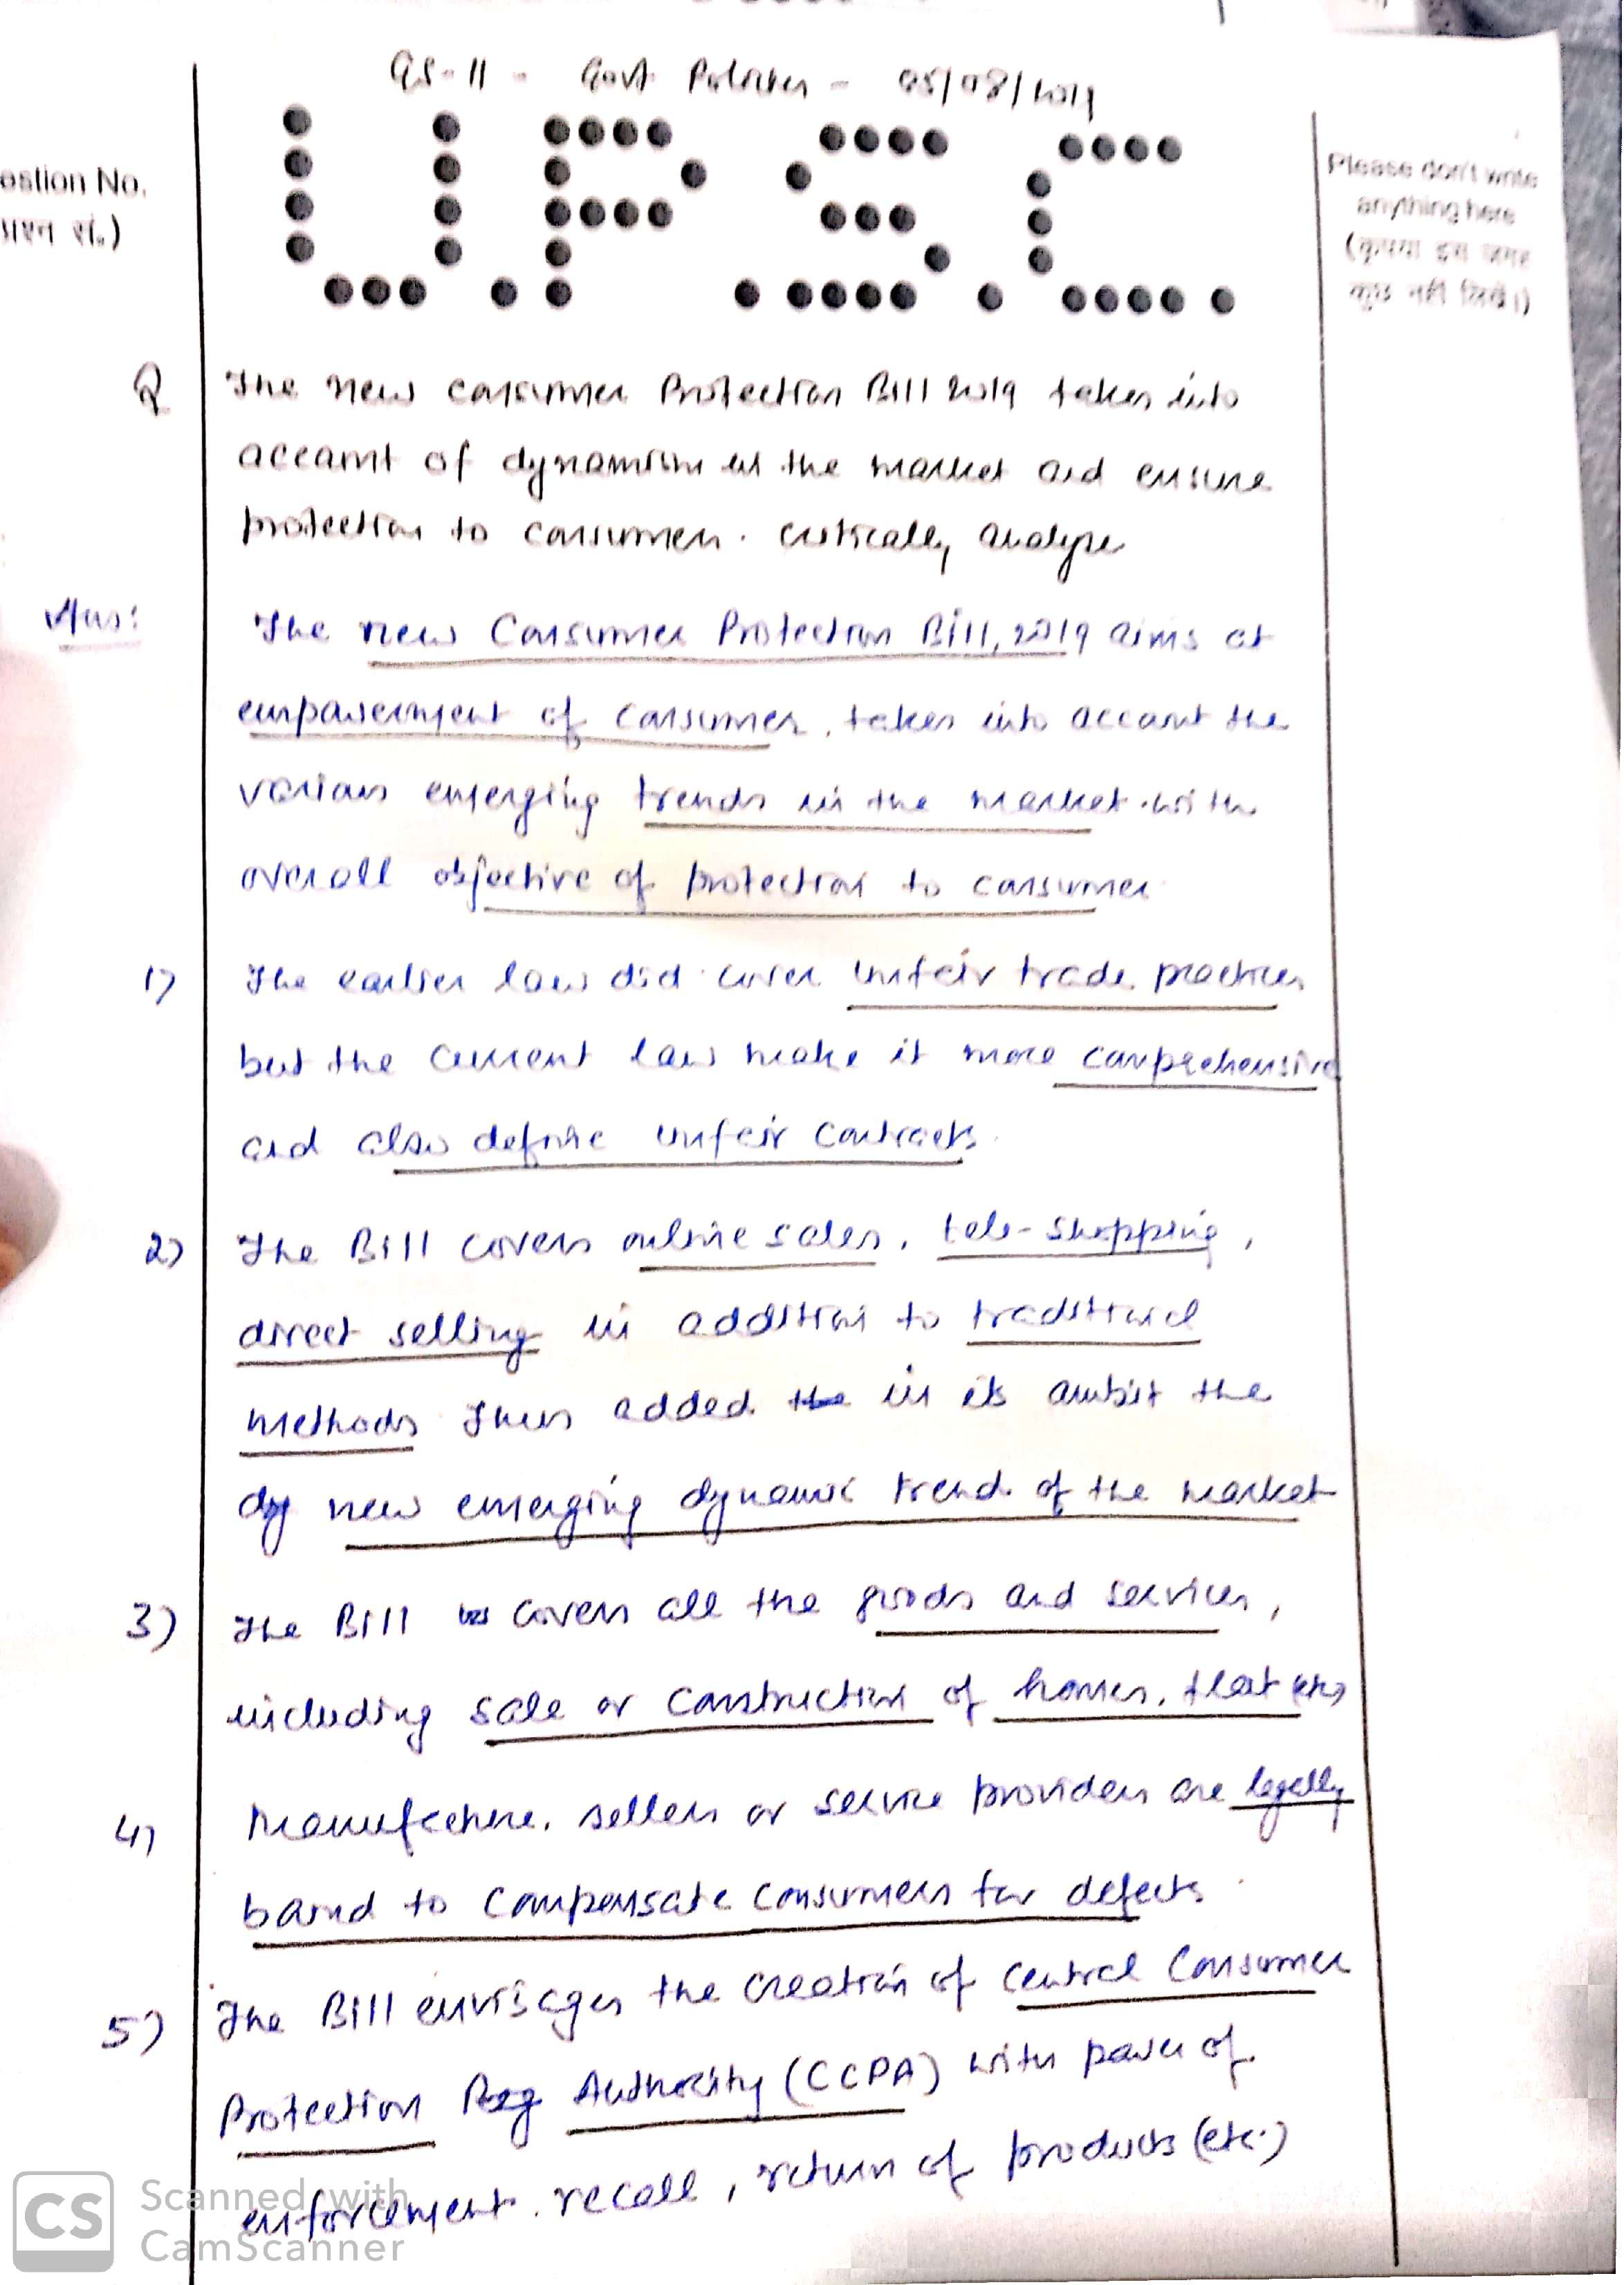 GS-II - Govt Policies - 05/08/2019
U.P.S.C.
estion No.
प्रश्न सं.)
Please don't write
anything here
(कृपया इस जगह
कुछ नहीं लिखें।)
Q The new consumer Protection Bill 2019 takes into
account of dynamism in the market and ensure
protection to consumers. critically analyse
Ans: The new Consumer Protection Bill, 2019 aims at
empowerment of consumer, takes into account the
various emerging trends in the market with
overall objective of protection to consumer
1) The earlier law did cover unfair trade practices
but the current law make it more comprehensive
and also define unfair contracts.
2) The Bill covers online sales, tele-shopping,
direct selling in addition to traditional
methods thus added the in its ambit the
dy new emerging dynamic trend of the market
3) The Bill covers all the goods and services,
including sale or construction of homes, flat etc)
4) Manufacture, sellers or service providers are legally
bound to compensate consumers for defects.
5) The Bill envisages the creation of Central Consumer
Protection Reg Authority (CCPA) with power of
enforcement, recall, return of products (etc.)
CS Scanned with
CamScanner